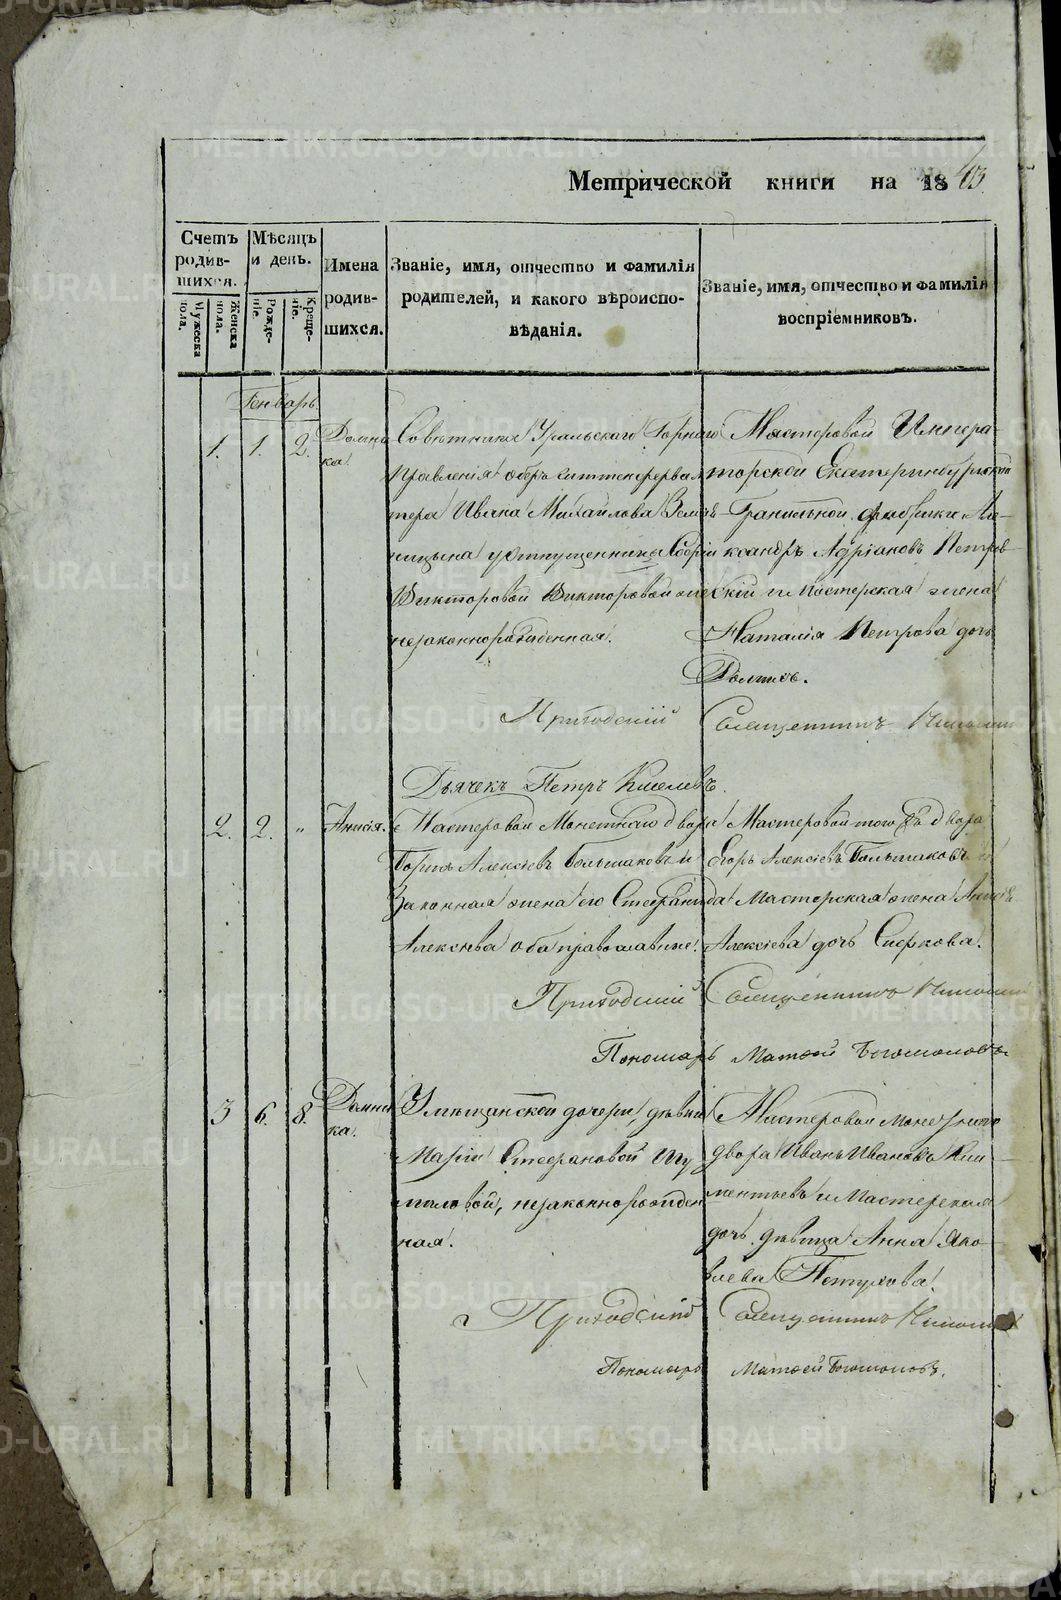 Метрической книги на 1843.
Счетъ родив-шихся.
Мужеска пола.
Женска пола.
Мѣсяцъ и день.
Рожде-ніе.
Креще-ніе.
Имена родив-шихся.
Званіе, имя, отчество и фамилія
родителей, и какого вѣроиспо-
вѣданія.
Званіе, имя, отчество и фамилія
воспріемниковъ.
Генварь
1. 1. 2. Домни
ка.
Совѣтника Уральскаго Горнаго
Правленія оберъ
Ивана Михайлова
Викторовой Викторовой
незаконнорожденная.
Мастеровой Импера-
торской Екатеринбургской
Гранильной фабрики Але-
ксандръ Адріановъ Петров-
скій и мастерская жена
Наталія Петрова дочь
Приходскій Священникъ
Дьячекъ Петръ Киселевъ.
2. 2. " Анисія.
Мастеровой Монетнаго двора
Борисъ Алексѣевъ Большаковъ и
Законная жена его Стефанида
Алексѣева оба православные.
Мастеровой того жъ двора
Егоръ Алексѣевъ Большаковъ и
Мастерская жена Анисія
Алексѣева дочь
Приходскій Священникъ
Пономарь Матѳей Богомоловъ
3 6. 8. Домни
ка.
У мѣщанской дочери, дѣвки
Маріи Стефановой Шу
миловой, незаконнорожден
ная.
Мастеровой монетнаго
двора Иванъ Ивановъ Кли
ментьевъ и Мастерская
дочь дѣвица Анна Яко
влева Петухова.
Приходскій Священникъ
Пономарь Матѳей Богомоловъ.
METRIKI.GASO-URAL.RU